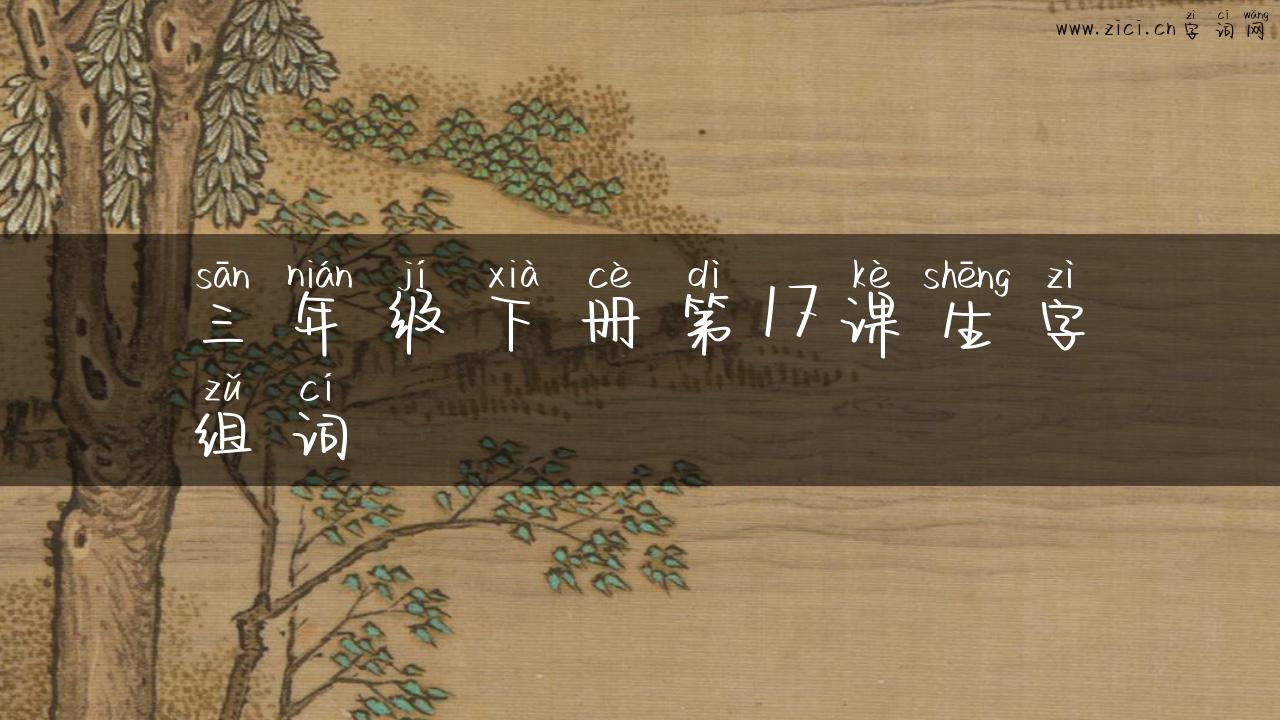 www.zici.cn 字词网
zì cí wǎng
sān nián jí xià cè dì kè shēng zì
三年级下册第17课生字
zǔ cí
组词